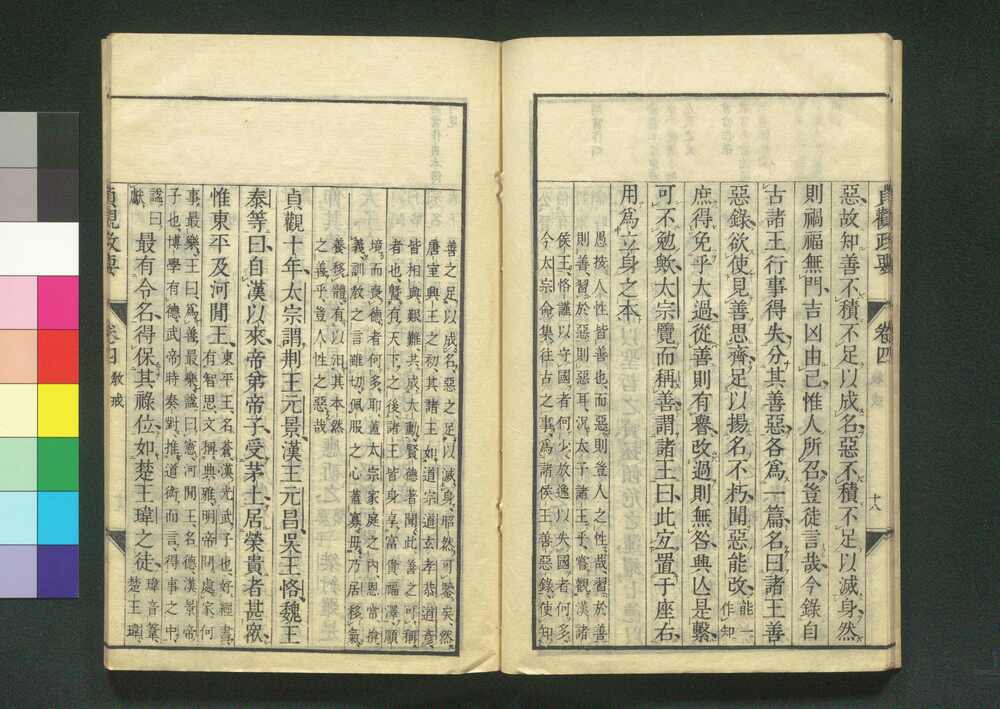 惡故知善不積不足以成名惡不積不足以滅身然
則禍福無門吉凶由己惟人所召豈徒言哉今錄自
古諸王行事得失分其善惡各爲一篇名曰諸王善
惡錄欲使見善思齊足以揚名不朽聞惡能改能一作知
庶得免乎大過從善則有譽改過則無咎興亡是繫
可不勉歟太宗覽而稱善謂諸王曰此宜置于座右
用爲立身之本
愚按人性皆善也而惡則豈人之性哉習於善
則善習於惡則惡耳況太子諸王乎嘗觀漢諸
侯王恪謹以守國者何少放逸以失國者何多
今太宗命集往古之事爲諸侯王善惡錄使知
貞觀政要 卷四 教戒 十八
善之足以成名惡之足以滅身昭然可鑒矣然
唐室興王之初其諸王如道宗道玄孝恭道彥
皆相與艱難共成大勳賢德著聞此善之可稱
者也曁有天下之後諸王皆身享富貴福澤順
境而喪德者何多耶蓋太宗家庭之內恩常掩
義訓教之言雖切佩服之心蓋寡毋乃居移氣
養移體有以汨其本然
之善乎豈人性之惡哉
貞觀十年太宗謂荆王元景漢王元昌吳王恪魏王
泰等曰自漢以來帝弟帝子受茅土居榮貴者甚衆
惟東平及河閒王東平王名蒼漢光武子也好經書
有智思文稱典雅明帝問處家何
事最樂王曰爲善最樂諡曰憲河閒王名德漢景帝
子也博學有德武帝時奏對推道術而言得事之中
諡曰獻最有令名得保其祿位如楚王瑋之徒瑋音葦楚王瑋
貞觀政要 卷四 教戒